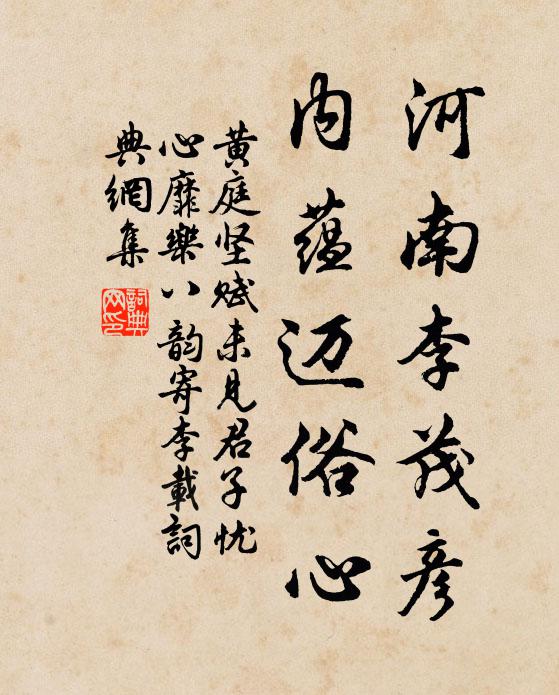 河南李茂彦
内蕴迈俗心
黄庭坚赋未见君子忧
心靡樂八韵寄李載詞
典網集
詞典
网印